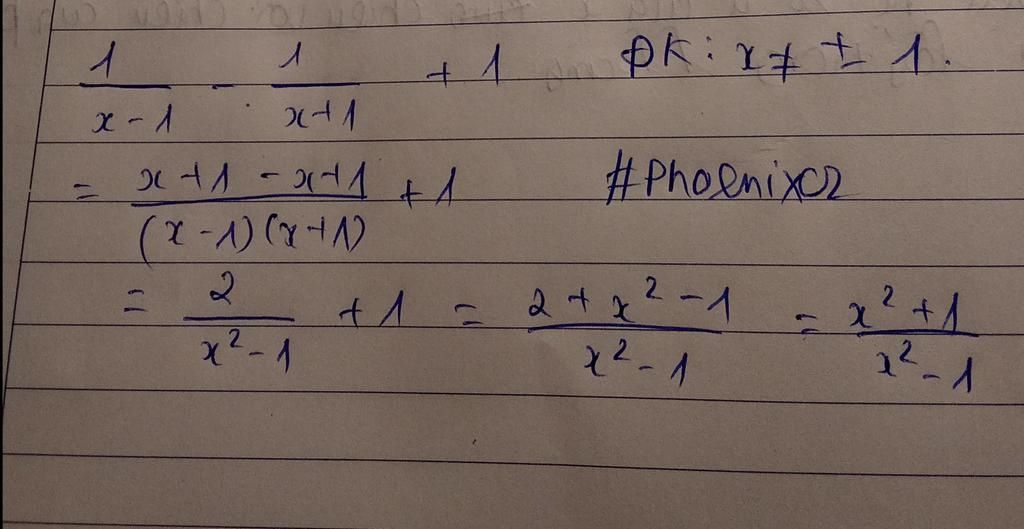 1/(x-1) - 1/(x+1) + 1 ĐK: x ≠ ± 1.
= (x+1-x+1)/((x-1)(x+1)) + 1 #Phoenixcz
= 2/(x²-1) + 1 = (2+x²-1)/(x²-1) = (x²+1)/(x²-1)